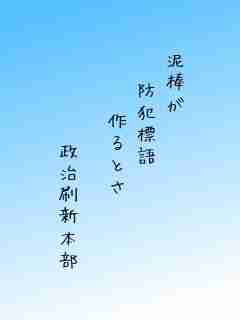 泥棒が
防犯標語
作るとさ
政治刷新本部